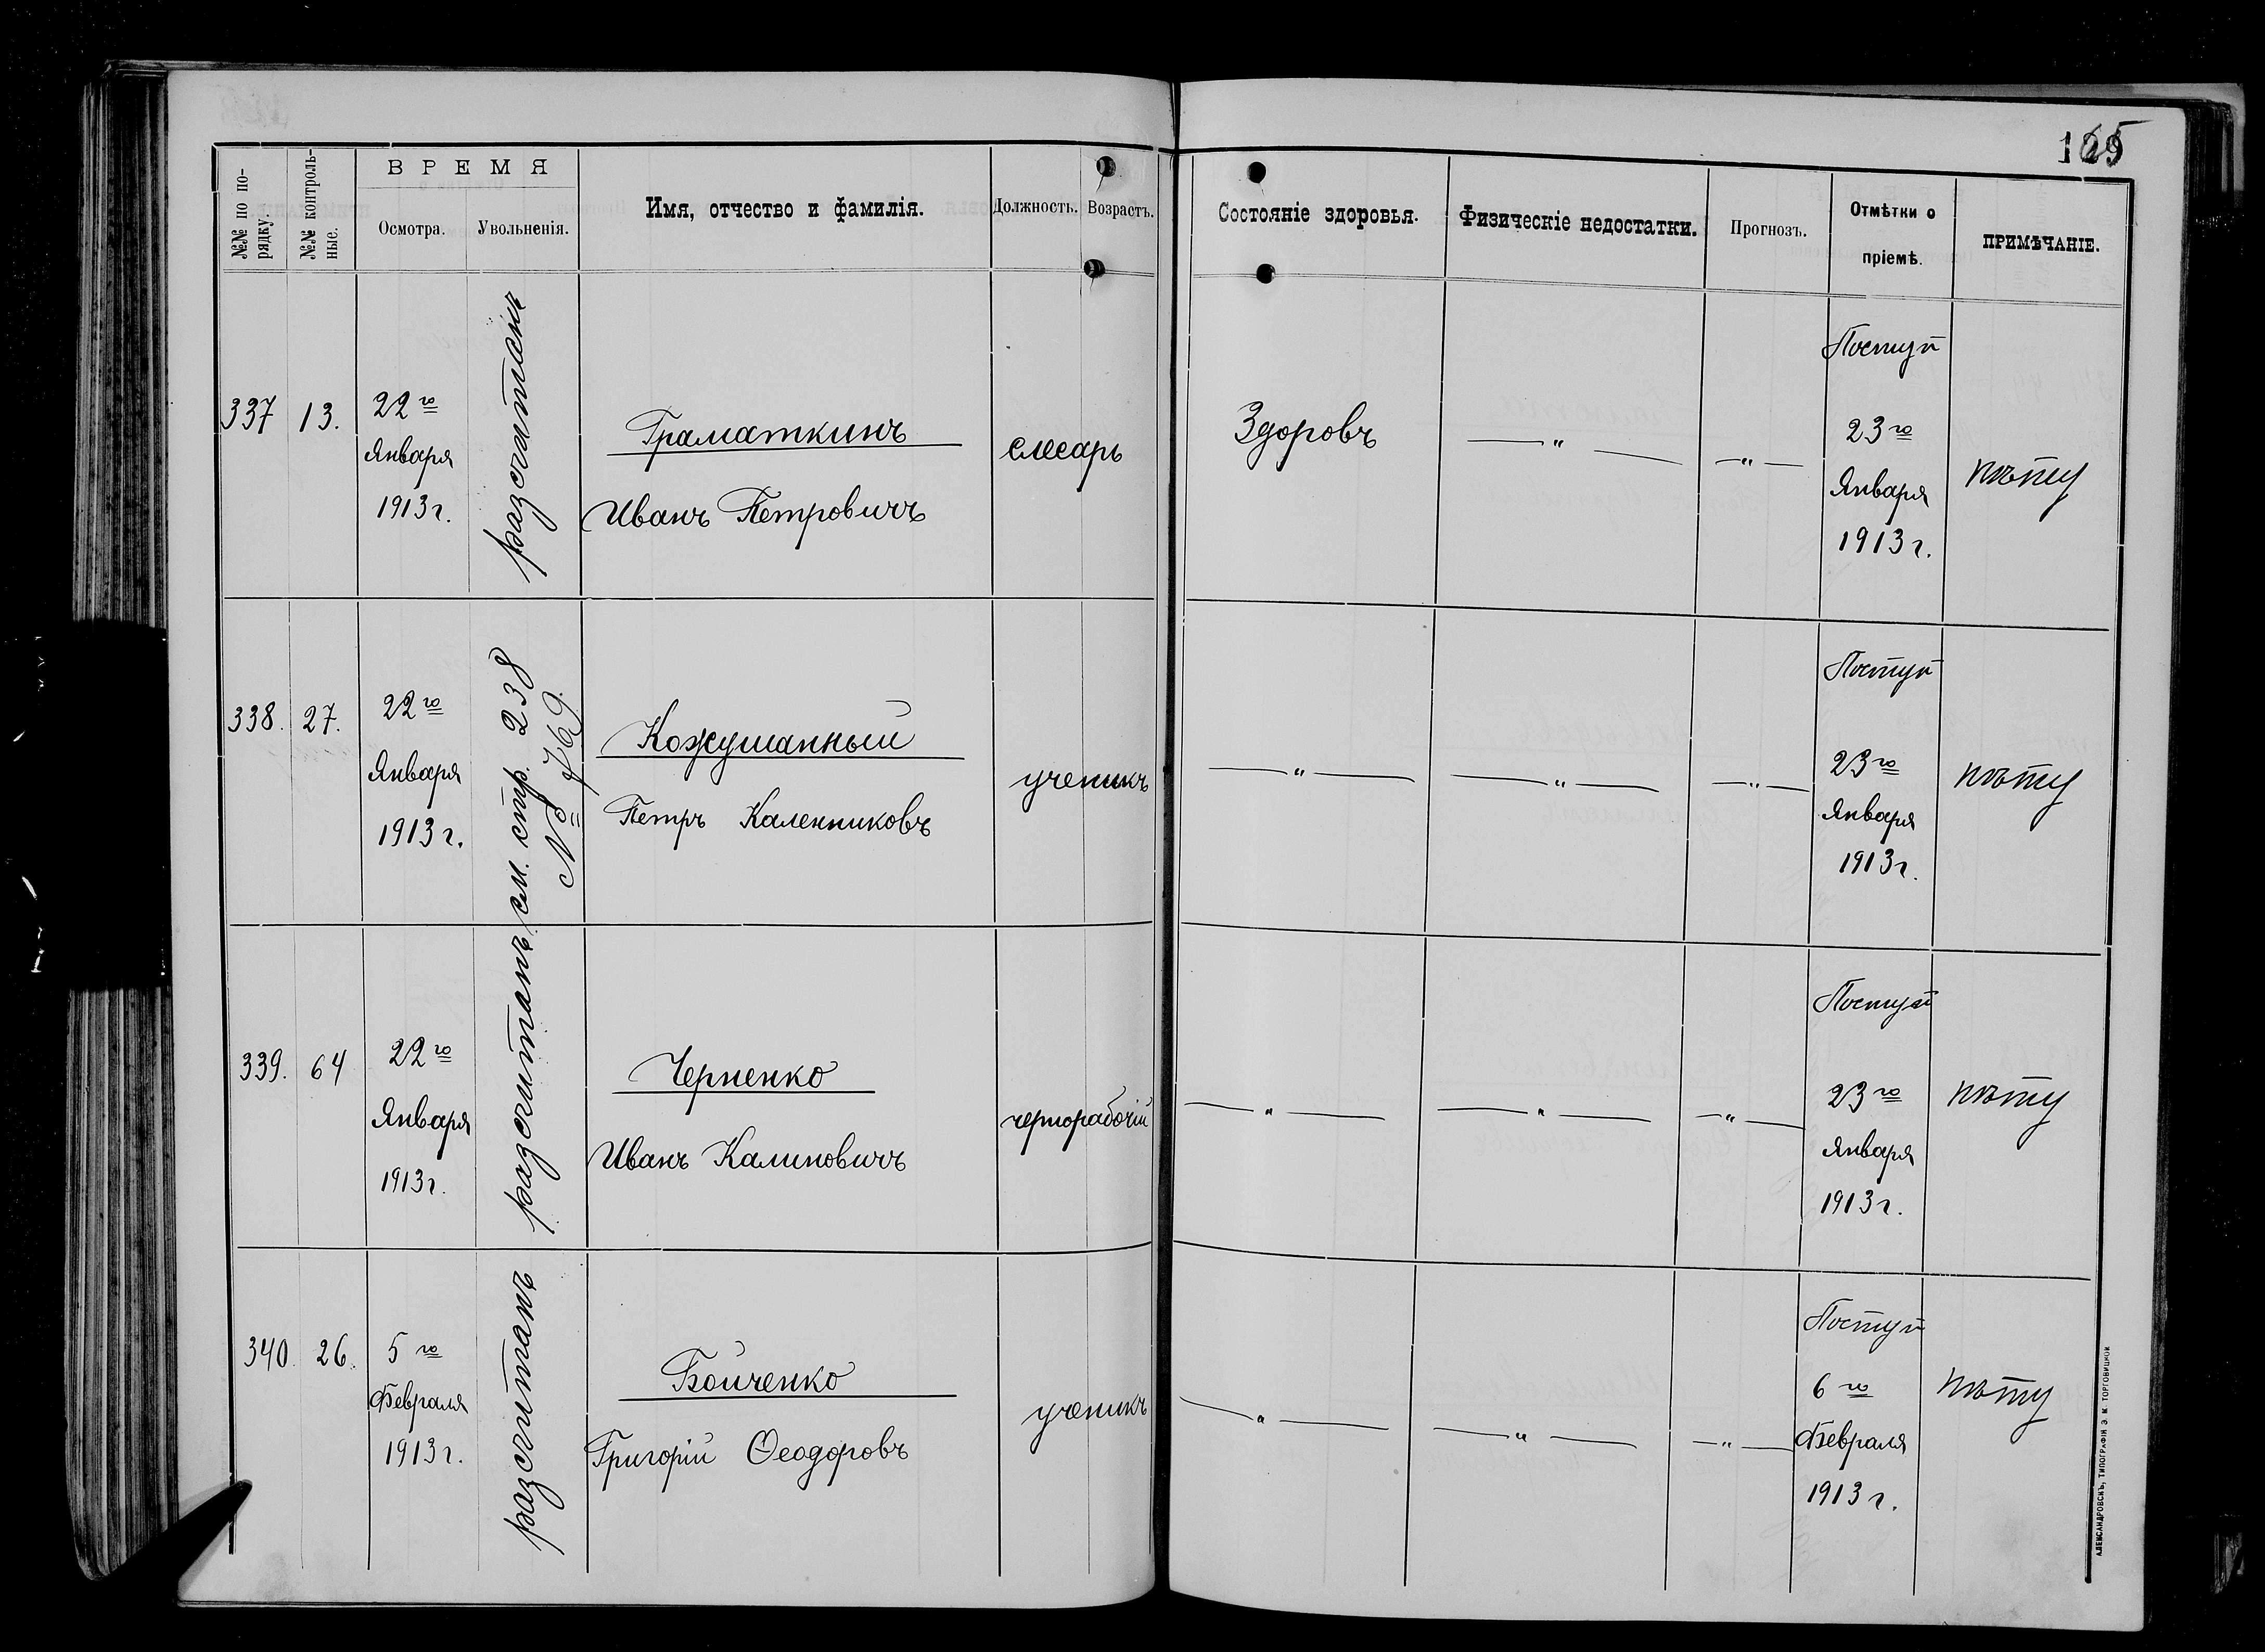 165
№№ по по-
рядку.
№№ контроль-
ные.
ВРЕМЯ
Осмотра.
Увольненія.
Имя, отчество и фамилія.
Должность.
Возрастъ.
Состояніе здоровья.
Физическіе недостатки.
Прогнозъ.
Отмѣтки о
пріемѣ.
ПРИМѢЧАНІЕ.
337
13.
22го
Января
1913 г.
разсчитанъ
Граматкинъ
Иванъ Петровичъ
слесарь
Здоровъ
— " —
— " —
Поступ
23го
Января
1913 г.
нѣту
338.
27.
22го
Января
1913 г.
см. стр. 238
№ 769.
Кожушанный
Петръ Каленниковъ
ученикъ
— " —
— " —
— " —
Поступ
23го
Января
1913 г.
нѣту
339.
64
22го
Января
1913 г.
разсчитанъ
Черненко
Иванъ Калиновичъ
чернорабочій
— " —
— " —
— " —
Поступ
23го
Января
1913 г.
нѣту
340.
26.
5го
Февраля
1913 г.
разсчитанъ
Бойченко
Григорій Ѳеодоровъ
ученикъ
— " —
— " —
— " —
Поступ
6го
Февраля
1913 г.
нѣту
АЛЕКСАНДРОВСКЪ, ТИПОГРАФІЯ Э. М. ТОРГОВИЦКОЙ